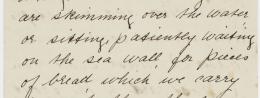 are skimming over the water
or sitting, patiently waiting
on the sea wall for pieces
of bread which we carry